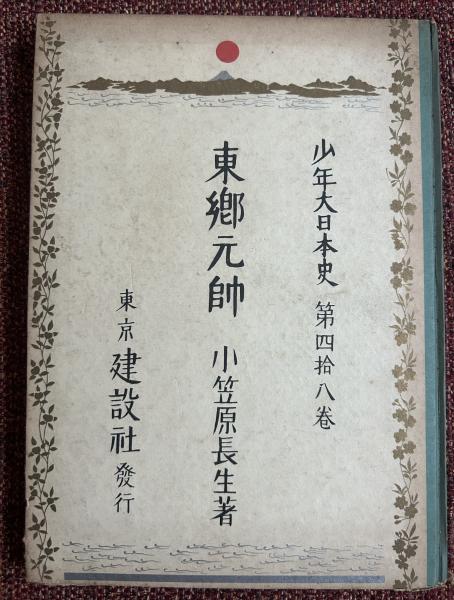 少年大日本史 第四拾八巻
東鄕元帥 小笠原長生著
東京 建設社 發行